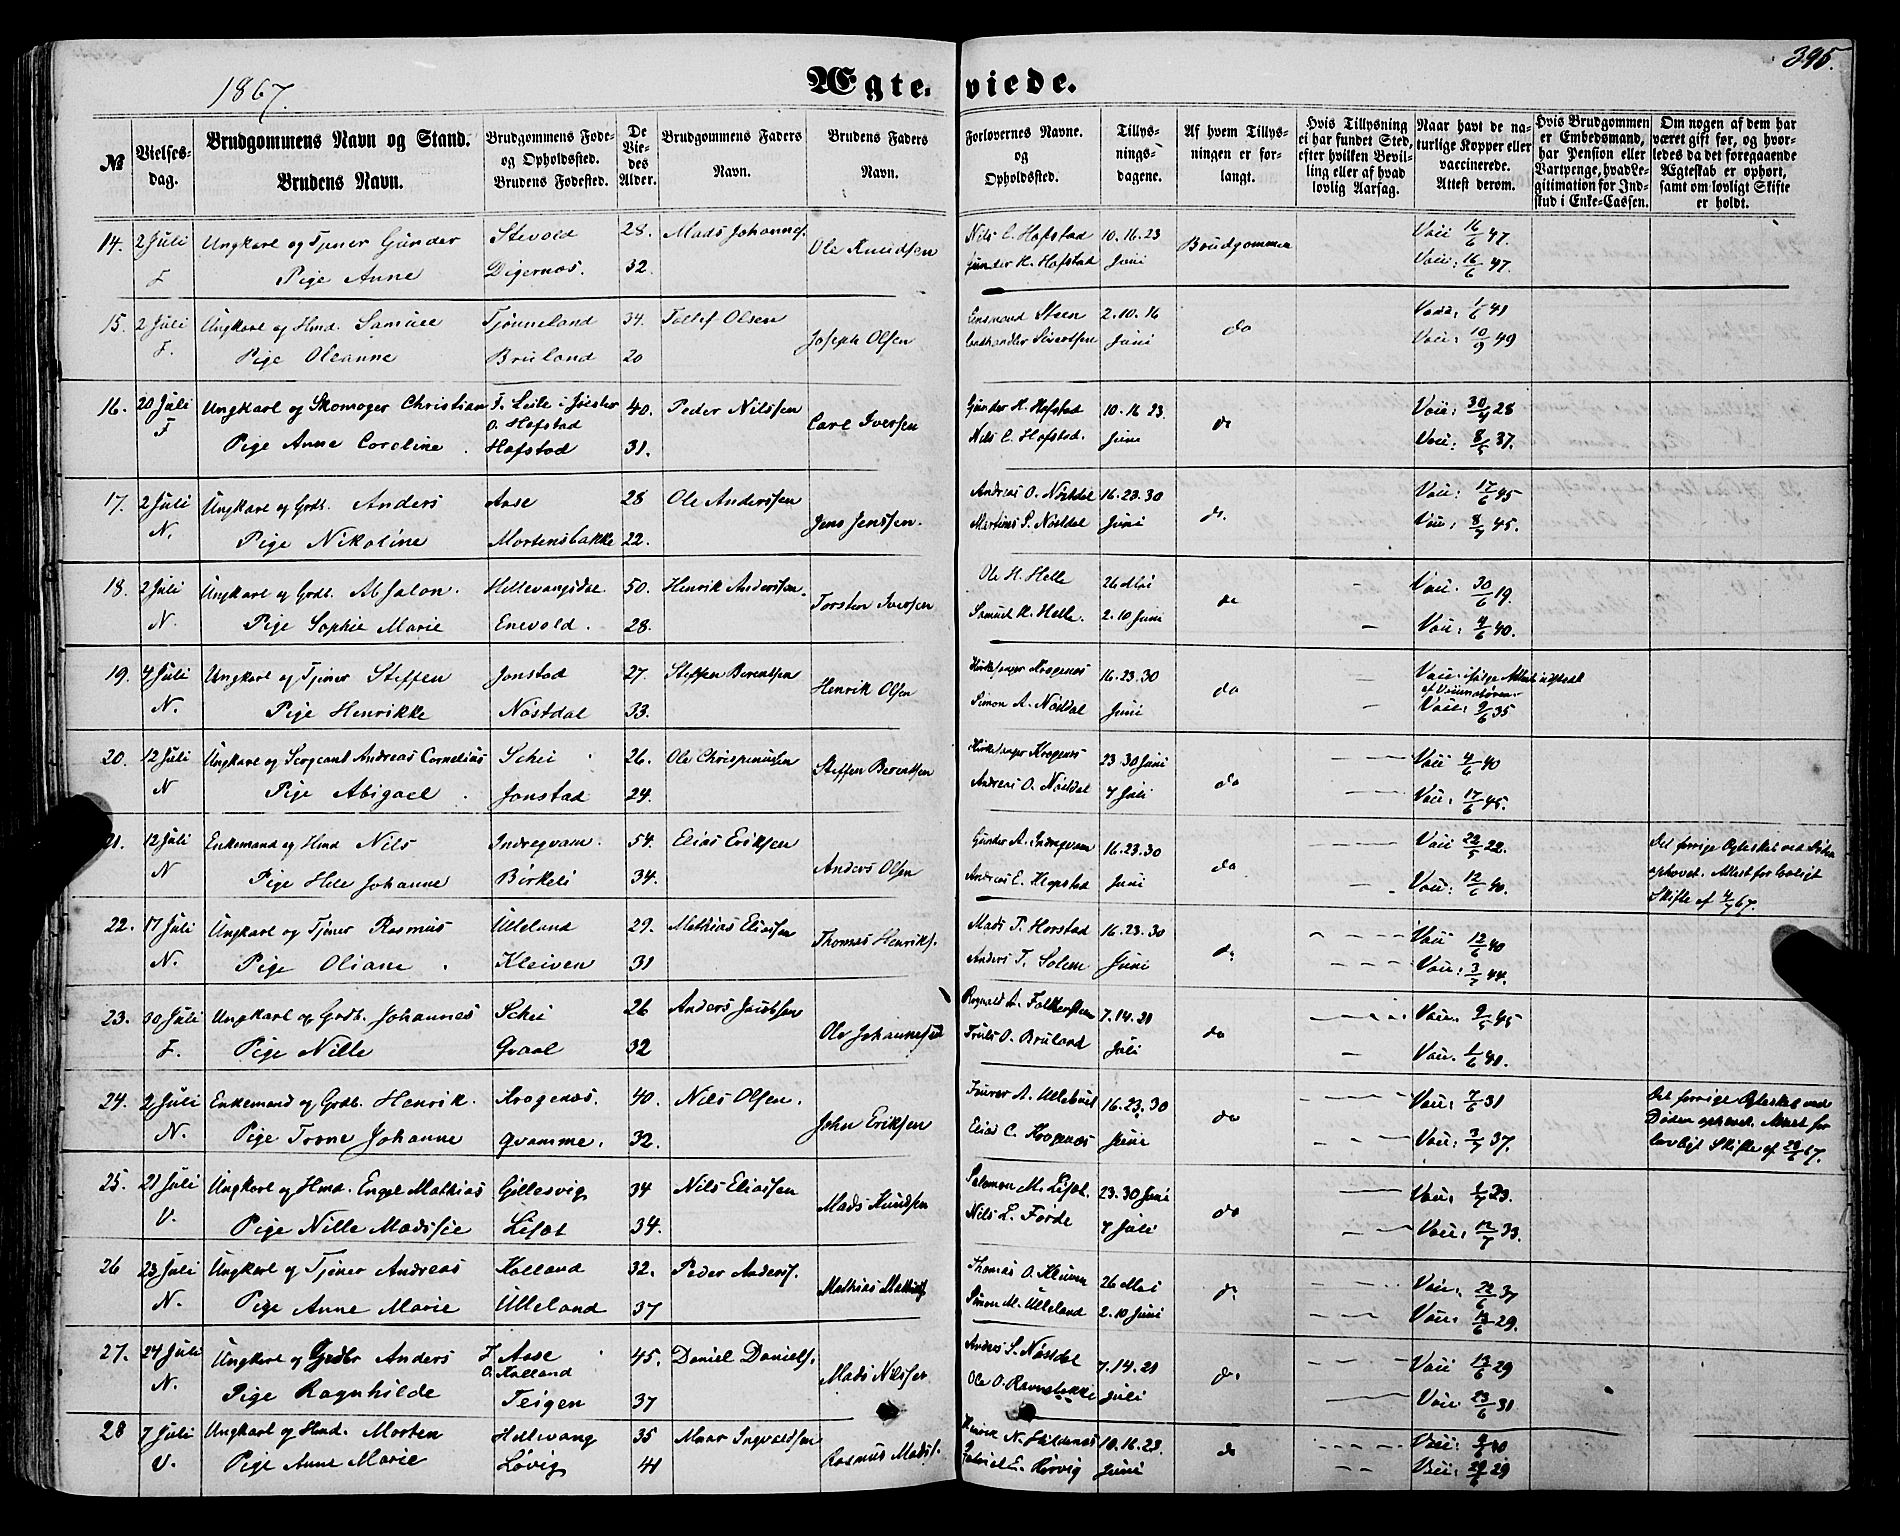 1867.
Ægteviede.
395.
№
Vielses-dag.
Brudgommens Navn og Stand.
Brudens Navn.
Brudgommens Føde- og Opholdssted.
Brudens Fødested.
De Viedes Alder.
Brudgommens Faders Navn.
Brudens Faders Navn.
Forlovernes Navne. og Opholdssted.
Tillysningsdagene.
Af hvem Tillysningen er forlangt.
Hvis Tillysning ei har fundet Sted, efter hvilken Bevilling eller af hvad lovlig Aarsag.
Naar havt de naturlige Kopper eller vaccinerede. Attest derom.
Hvis Brudgommen er Embedsmand, har Pension eller Vartpenge, hvad Legitimation for Indskud i Enke-Cassen.
Om nogen af dem har været gift før, og hvorledes da det foregaaende Ægteskab er ophørt, samt om lovligt Skifte er holdt.
14. 2 Juli Ungkarl og Tjener Gunder Stevold 28. Mads Johannes. Ole Knudsen Nils C. Hofstad 10.16.23 Brudgommen Vaci 16/6 47.
F Pige Anne Digernæs. 32. Gunder H. Hofstad Juni Vaci: 16/6 47.
15. 2 Juli Ungkarl og Hmd. Samuel Tjønneland 34. Tollef Olsen Joseph Olsen Steen 2.10.16 do 1/6 41
F. Pige Oleanne Bruland 20 Landhandler Sivertsen Juni Vaci: 10/9 49
16. 20 Juli Ungkarl og Skomager Christian F. Leite i Jølster 40. Peder Nilssen Carl Iversen Gunder H. Hofstad 10.16 23 do Vaci: 28
O. Hofstad
F Pige Anne Coroline Hofstad 31. Nils C. Hofstad. Juni Vaci: 37.
17. 2 Juli Ungkarl og Grdb. Anders Aase 28 Ole Anderssen Jens Jenssen. Andreas O. Nøstdal 16.23.30 do. Vaci: 17/6 45
N. Pige Nikoline Mortensbakke 22. Martinus S. Nøstdal Juni Vaci: 8/7 45.
18. 2 Juli Ungkarl og Grdb. Absalon. 50. Henrik Anderssen. Torsten Iversen Ole H. Helle 26 Mai do Vaci. 30/6 19.
N. Pige Sophie Marie Enevold. 28. Samuel H. Helle. 2.10 Juni Vaci: 4/6 40.
19. 4 Juli Ungkarl og Tjener Steffen Jonstad 27. Steffen Berentsen Henrik Olsen Kirkesanger Krogenæs 16.23.30 do Vaci. ifølge Attest udstedt af Vaccinatøren.
N. Pige Henrikke Nøstdal 33. Simon A. Nøstdal Juni Vaci: 9/6 35
20. 12 Juli Ungkarl og Sergeant Andreas Cornelius Schei 26. Ole Chrispinussen Steffen Berentsen Kirkesanger Krogenæs 23 30 Juni do Vaci 4/6 40
N Pige Abigael Jonstad 24. Andreas O. Nøstdal 7 Juli Vaci: 17/6 45.
21. 12 Juli Enkemand og Hmd Nils Indregvam. 54. Elias Eriksen Anders Olsen Gunder A. Indregvam 16.23.30 do Vaci 22/5 22. Det forrige Egteskab ved Døden
N Pige Hele Johanne Birkeli 34. Andreas E. Juni Vaci: 12/6 40. ophævet. Attest for lovligt
Skifte af 4/7 67.
22. 17 Juli Ungkarl og Tjener Rasmus Ulleland 29. Mathias Eliassen Thomas Henriks. Mads P. Horstad 16.23.30 do Vaci 12/6 40
N. Pige Oliane Kleiven 31 Anders T. Solem Juni Vaci: 3/7 44.
23. 30 Juli Ungkarl og Grdb. Johannes Schei 26 Anders Jacobsen Ole Johannesen 7.14.21 do Vaci. 45
F. Pige Nille Graal 32 Truls O. Bruland Juli Vaci. 1/6 41.
24. 2 Juli Enkemand og Grdb. Henrik. Krogenæs. 40. Nils Olsen. John Eriksen 16.23.30 do Vaci: 7/6 31 Det forrige Egteskab ved
N. Pige Trone Johanne Qvamme. 32. Elias C. Krogenæs Juni Vaci: 3/7 37. Døden ophævet. Attest for
lovligt Skifte af 28/6 67.
25. 21 Juli Ungkarl og Hmd. Engel Mathias Gillesvig 34 Nils Eliassen Mads Knudsen Salomon M. 23.30 Juni do Vaci: 1/7 23.
V. Pige Nille Madssie 34. Nils L. Førde 7 Juli Vaci: 12/7 33.
26 23 Juli Ungkarl og Tjener Andreas Kalland 32. Peder Anders. Mathias Thomas O. Kleiven 26 Mai do Vaci. 22/6 37
N. Pige Anne Marie Ulleland 37 Simon M. Ulleland 2.10 Juni Vaci. 13/6 29.
27. 24 Juli Ungkarl og Grdbr Anders F. Aase 45. Daniel Daniels. Mads Nilssen Andreas S. Nøstdal 7.14.21 do. Vaci 13/6 29
O. Kalland
N. Pige Ragnhilde Teigen 37 Ole O. Ravnebakke Juli Vaci 23/6 31
28 7 Juli Ungkarl og Hmd. Morten Hellevang 35 Ingvaldsen Rasmus Mads. 10.16.23. do Vaci: 40
V. Pige Anne Marie Løvig 41 Juni Vaci: 29/6 29